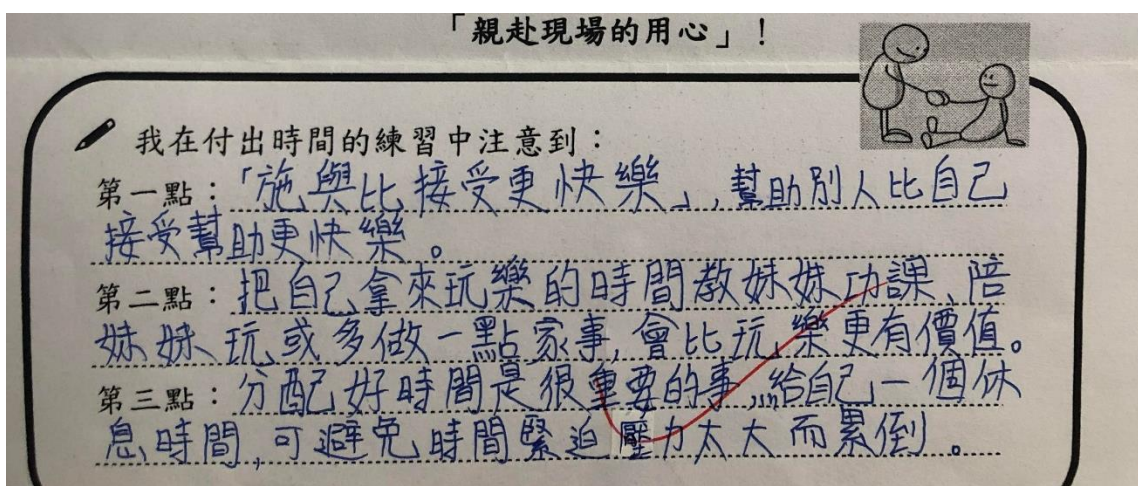 「親赴現場的用心」!
我在付出時間的練習中注意到:
第一點:「施與比接受更快樂」,幫助別人比自己
接受幫助更快樂。
第二點:把自己拿來玩樂的時間教妹妹功課、陪
妹妹玩、或多做一點家事,會比玩樂更有價值。
第三點:分配好時間是很重要的事,給自己一個休
息時間,可避免時間緊迫壓力太大而累倒。